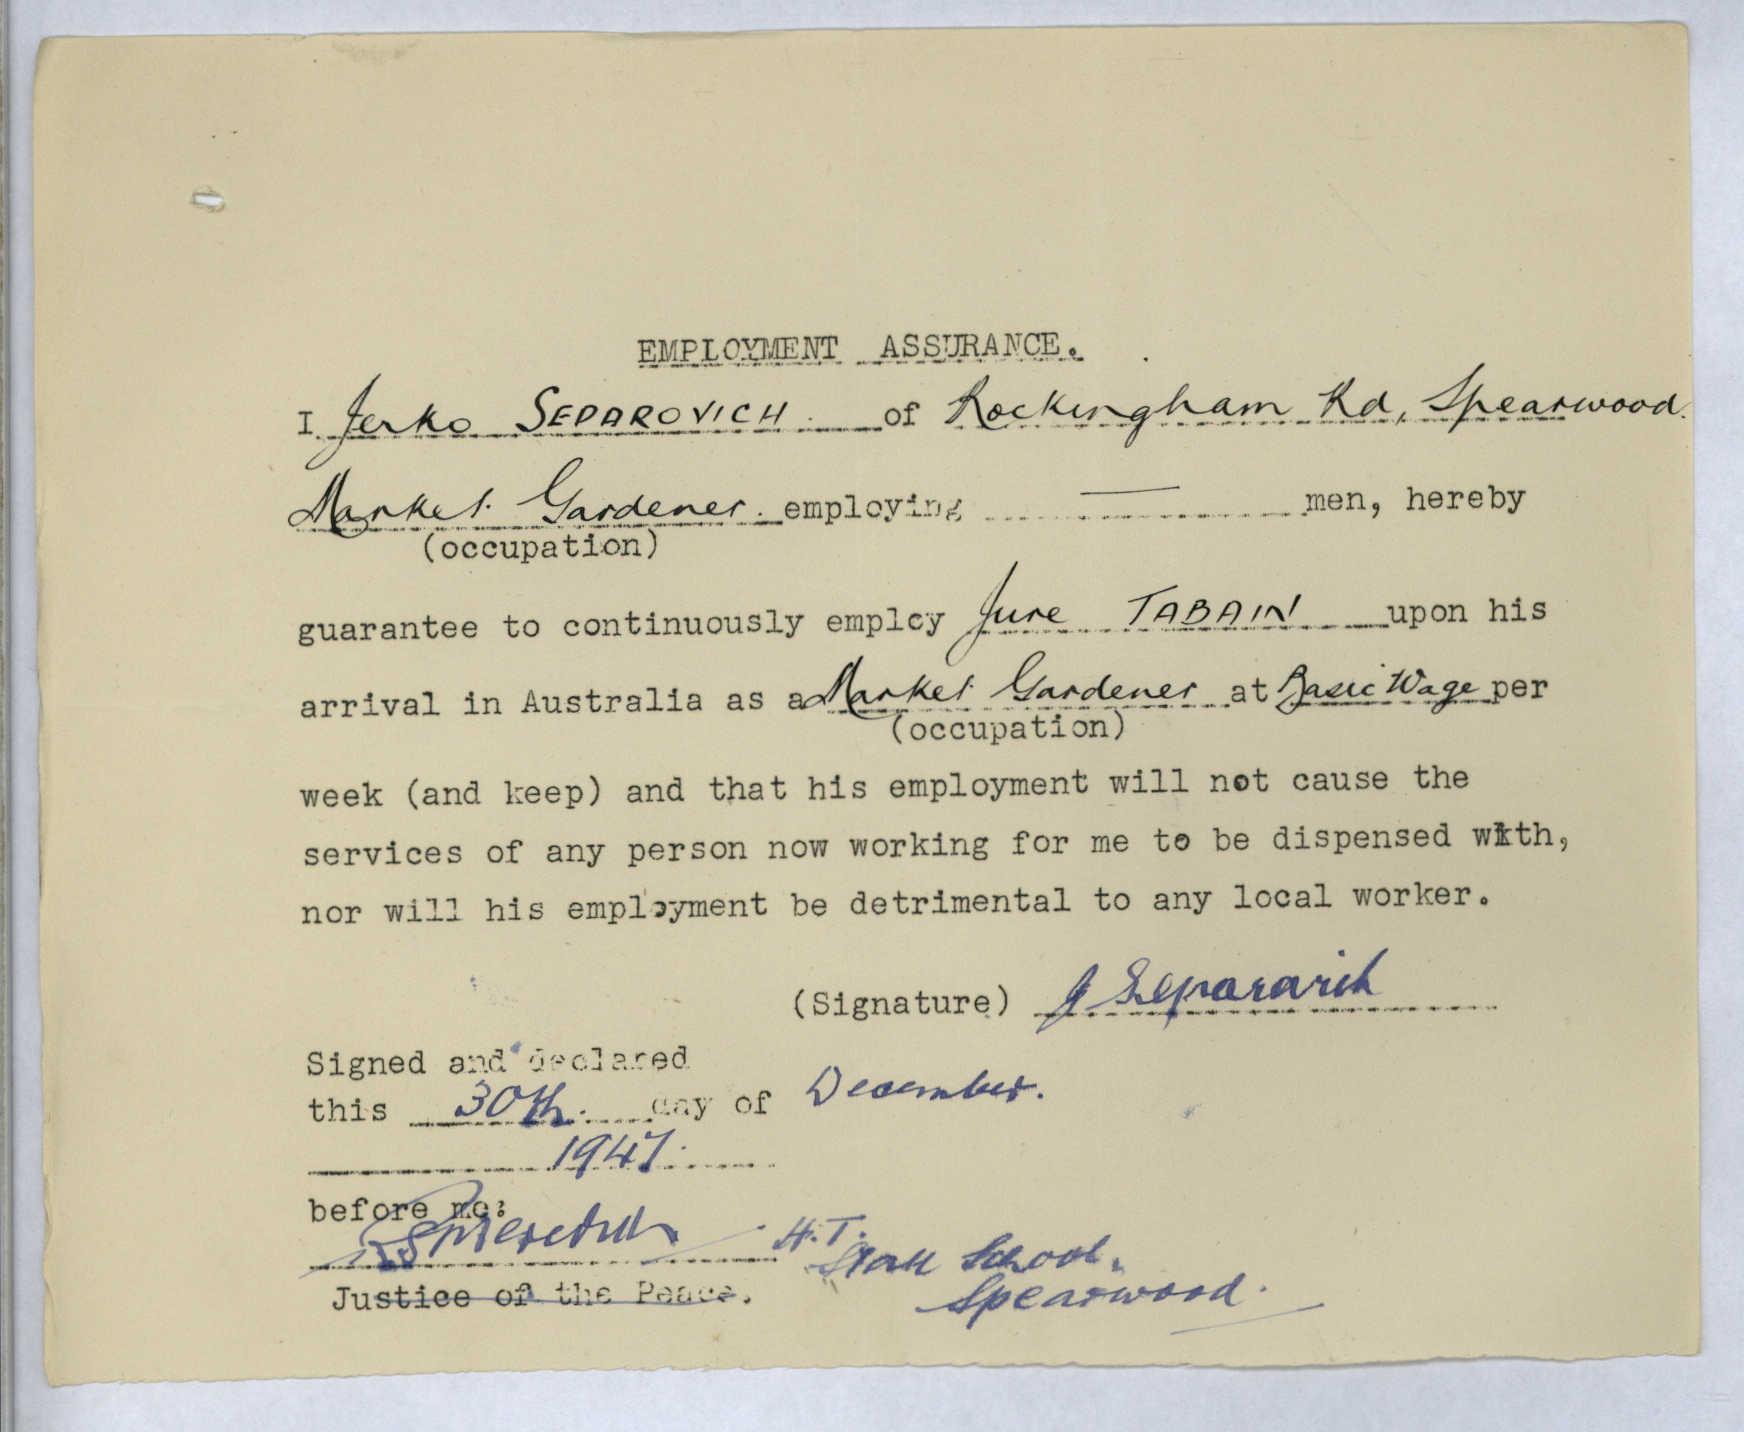 EMPLOYMENT ASSURANCE.
I Jerko SEPAROVICH of Rockingham Rd, Spearwood.
Market Gardener. employing — men, hereby
(occupation)
guarantee to continuously employ Jure TABAIN upon his
arrival in Australia as a Market Gardener at Basic Wage per
(occupation)
week (and keep) and that his employment will not cause the
services of any person now working for me to be dispensed with,
nor will his employment be detrimental to any local worker.
(Signature) J Separovich
Signed and declared
this 30th day of December.
1947.
before me:
H.T.
State School,
Justice of the Peace.
Spearwood.